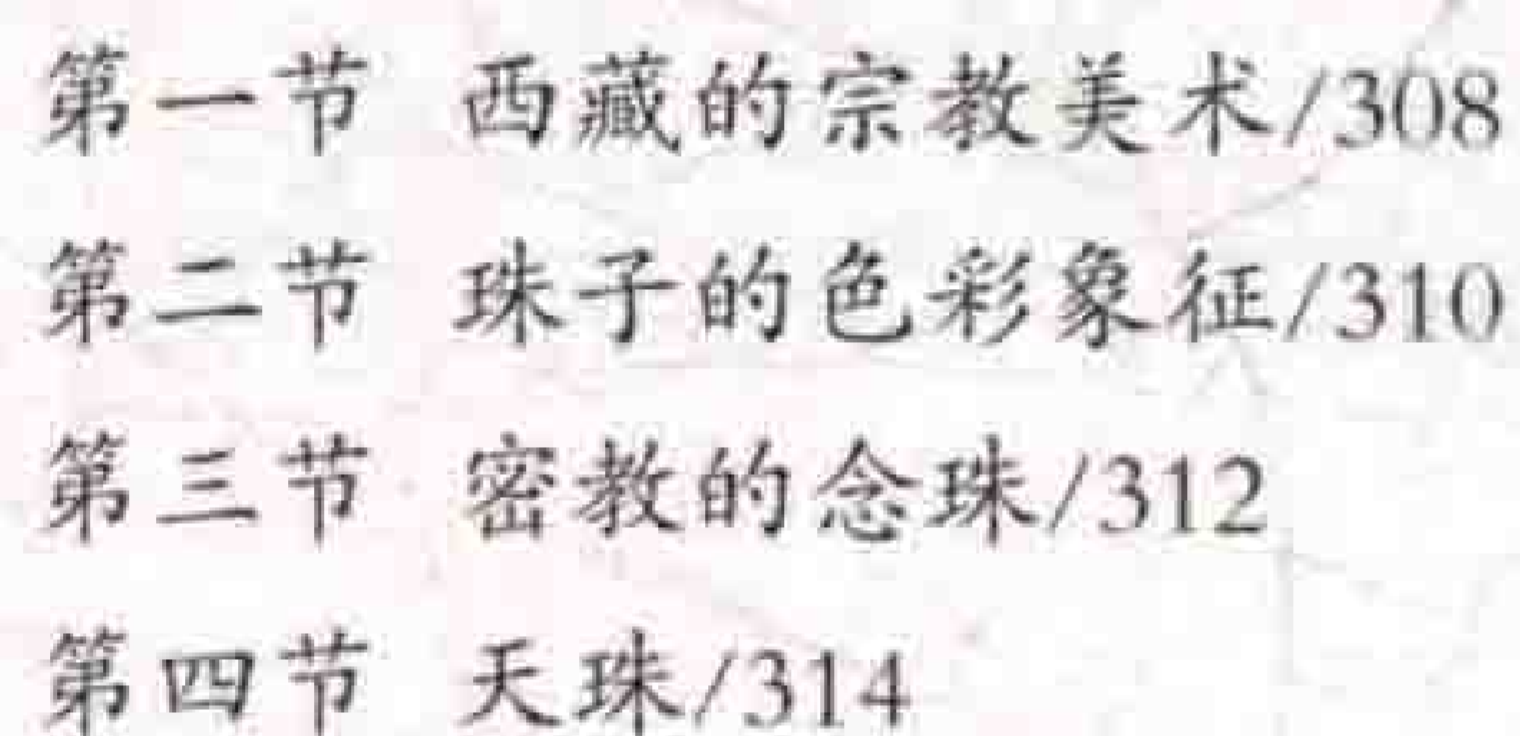 第一节 西藏的宗教美术/308
第二节 珠子的色彩象征/310
第三节 密教的念珠/312
第四节 天珠/314